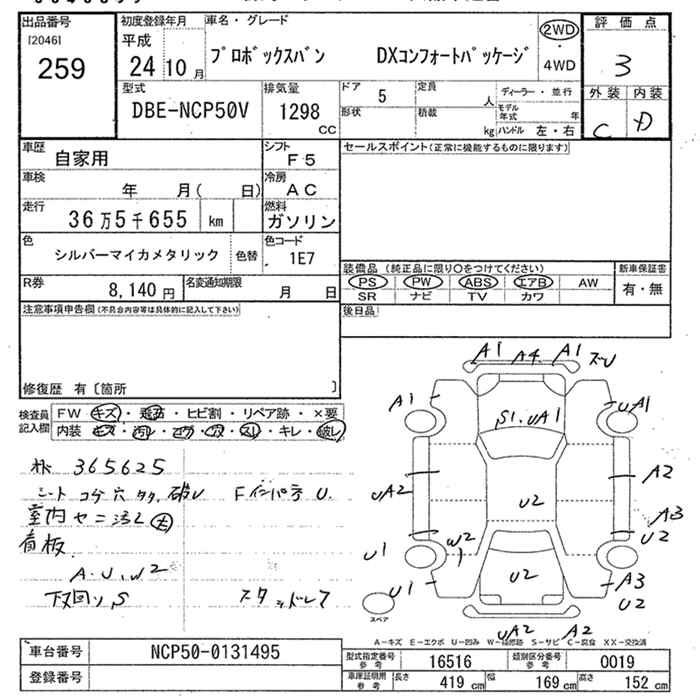 出品番号
[2046]
259
初度登録年月
平成
24 10 月
車名・グレード
プロボックスバン DXコンフォートパッケージ
2WD
・
4WD
評価点
3
外装 内装
C D
型式
DBE-NCP50V
排気量
1298
CC
ドア 5
形状
定員 人
積載 kg
ディーラー・並行
モデル年式 年
ハンドル 左・右
車歴
自家用
シフト
F5
車検
年 月( 日)
冷房
AC
走行
36万5千655 km
燃料
ガソリン
色
シルバーマイカメタリック
色替
色コード
1E7
R券
8,140 円
名変通知期限
月 日
セールスポイント(正常に機能するものに限ります)
装備品 (純正品に限り○をつけてください)
PS PW ABS エアB AW
SR ナビ TV カワ
新車保証書
有・無
後日品
注意事項申告欄(不具合内容等は具体的に記入して下さい)
修復歴 有〔箇所 〕
検査員
記入欄
FW キズ・飛石・ヒビ割・リペア跡・×要
内装 キズ・汚レ・コゲ・穴・スレ・キレ・破レ
365625
シート コゲ 穴 タタ 破レ Fインパネ U.
室内ヤニ汚レ 大
看板
A.U.W2
下回リ S スタッドレス
A1 A4 A1
A1
S1.UA1
UA1
UA2
U2
A2
A3
U2
U1
W2
U1
U2
A3
U2
UA2 A2
スペア
A-キズ E-エクボ U-凹み W-修理跡 S-サビ C-腐食 XX-交換済
車台番号 NCP50-0131495
登録番号
型式指定番号
参考
16516
類別区分番号
参考
0019
車庫証明用
参考
長さ 419 cm
幅 169 cm
高さ 152 cm